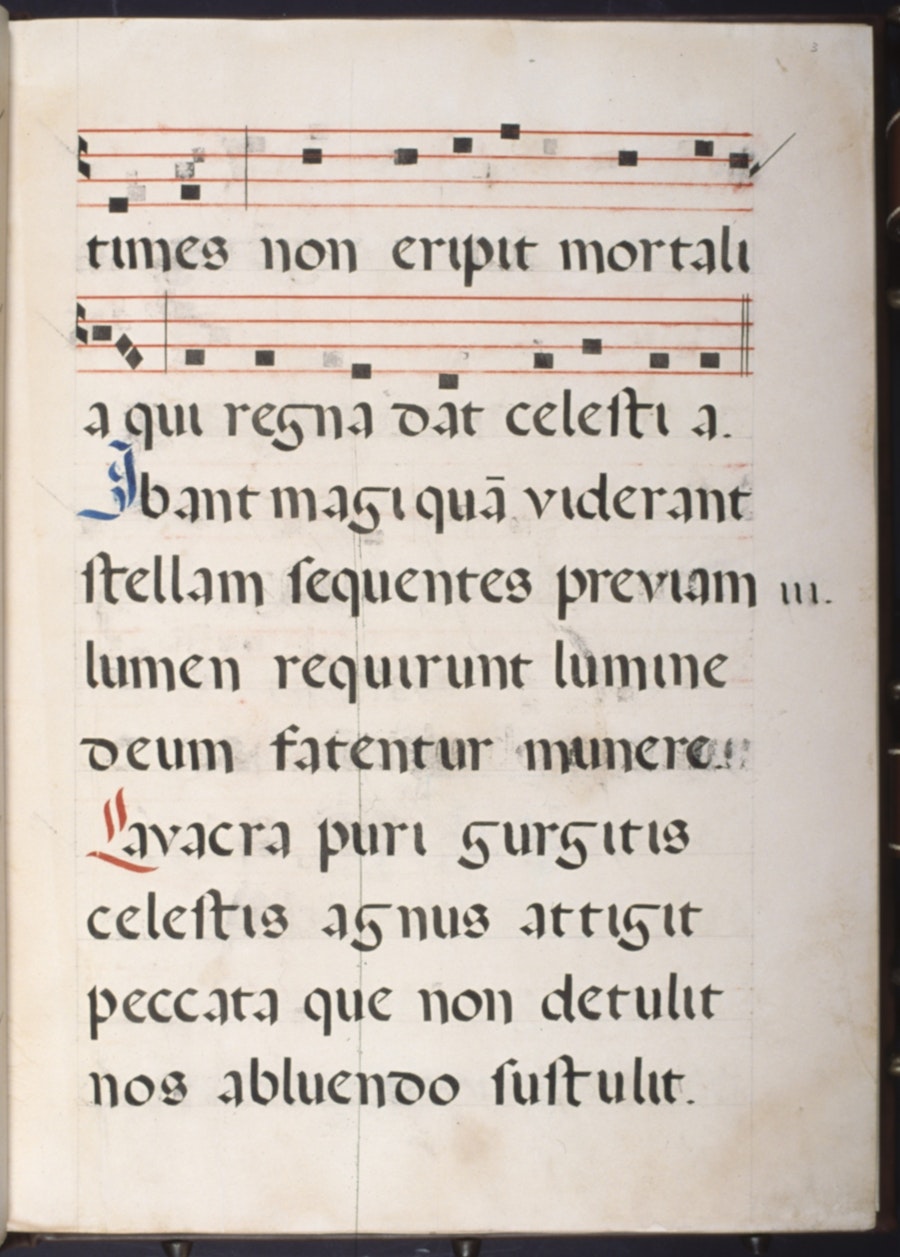 3
times non eripit mortali
a qui regna dat celesti a.
Ibant magi quā viderant
ſtellam ſequentes previam iii.
lumen requirunt lumine
deum fatentur munere.
Lavacra puri gurgitis
celeſtis agnus attigit
peccata que non detulit
nos abluendo ſuſtulit.